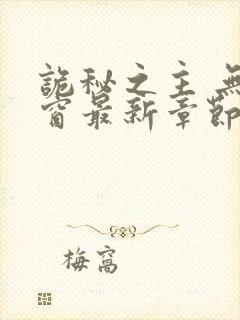 詭秘之主 無
窗最新章節
梅窩